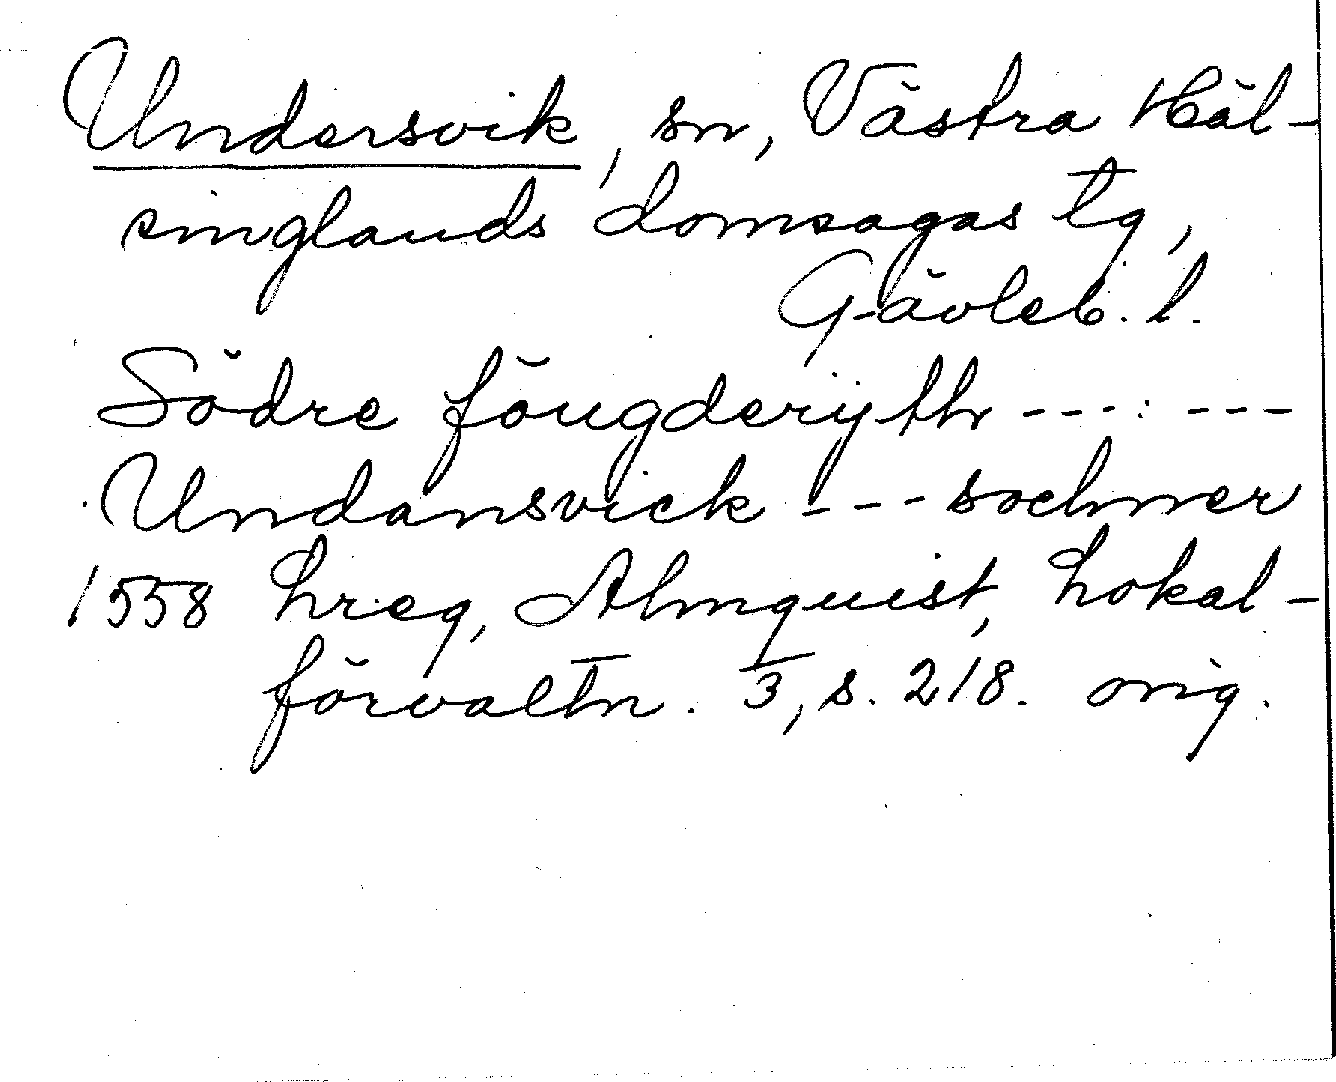 Undersvik, sn, Västra Häl-
singlands domsagas tg,
Gävleb. l.
Södre föugderijth ---:---
Undansvick --- sochner
1558 hreg, Almquist, Lokal-
förvaltn. 3, s. 218. orig.